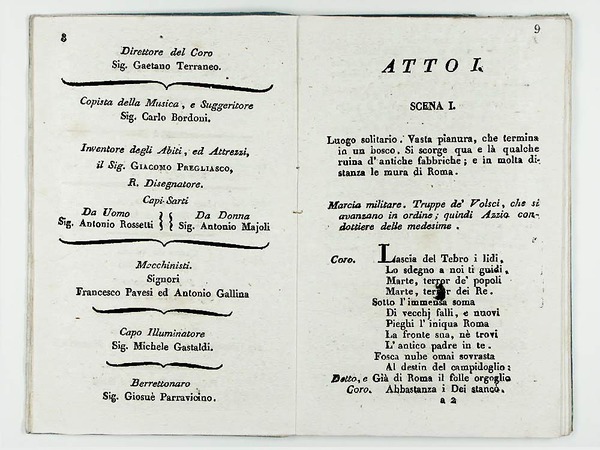 8
Direttore del Coro
Sig. Gaetano Terraneo.
Copista della Musica, e Suggeritore
Sig. Carlo Bordoni.
Inventore degli Abiti, ed Attrezzi,
il Sig. GIACOMO PREGLIASCO,
R. Disegnatore.
Capi-Sarti
Da Uomo
Sig. Antonio Rossetti
Da Donna
Sig. Antonio Majoli
Macchinisti.
Signori
Francesco Pavesi ed Antonio Gallina
Capo Illuminatore
Sig. Michele Gastaldi.
Berrettonaro
Sig. Giosuè Parravicino.
9
ATTO I.
SCENA I.
Luogo solitario. Vasta pianura, che termina
in un bosco. Si scorge qua e là qualche
ruina d'antiche fabbriche; e in molta di-
stanza le mura di Roma.
Marcia militare. Truppe de' Volsci, che si
avanzano in ordine; quindi Azzio con-
dottiere delle medesime.
Coro. Lascia del Tebro i lidi,
Lo sdegno a noi ti guidi,
Marte, terror de' popoli
Marte, terror dei Re.
Sotto l'immensa soma
Di vecchj falli, e nuovi
Pieghi l'iniqua Roma
La fronte sua, nè trovi
L'antico padre in te.
Fosca nube omai sovrasta
Al destin del campidoglio:
Detto, e Già di Roma il folle orgoglio
Coro. Abbastanza i Dei stancò.
a 2